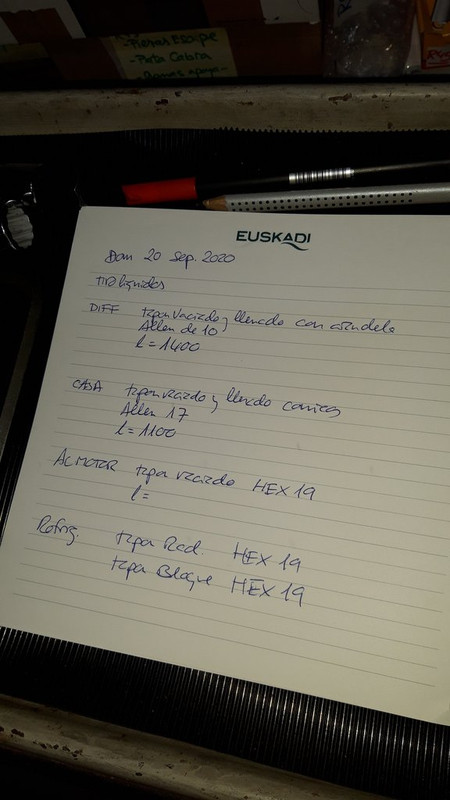 -Piezas Escape
-Pinta Cabra
EUSKADI
Dom 20 Sep. 2020
tira líquidos
DIFF tapon vaciado y llenado con arandela
Allen de 10
l = 1400
CAJA tapon vaciado y llenado conicos
Allen 17
l = 1100
AC MOTOR tapon vaciado HEX 19
l =
Refrig. tapon Rad. HEX 19
tapon Bloque HEX 19